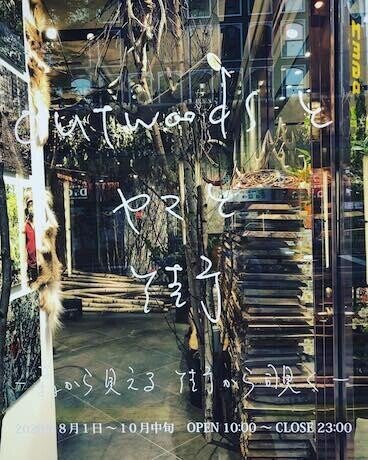 outwoods と
ヤマと
街
から見える 街から覗く
8月1日～10月中旬 OPEN 10:00～CLOSE 23:00